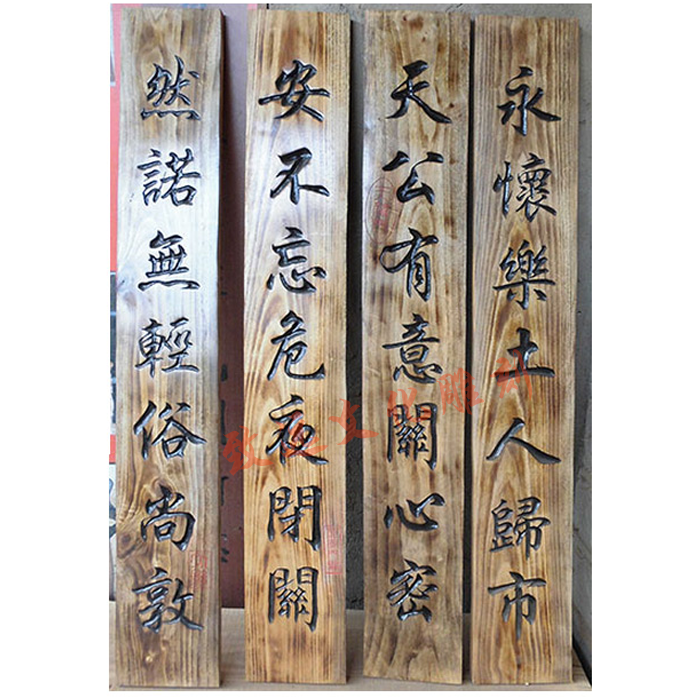 永懷樂土人歸市
天公有意關心密
安不忘危夜閉關
然諾無輕俗尚敦